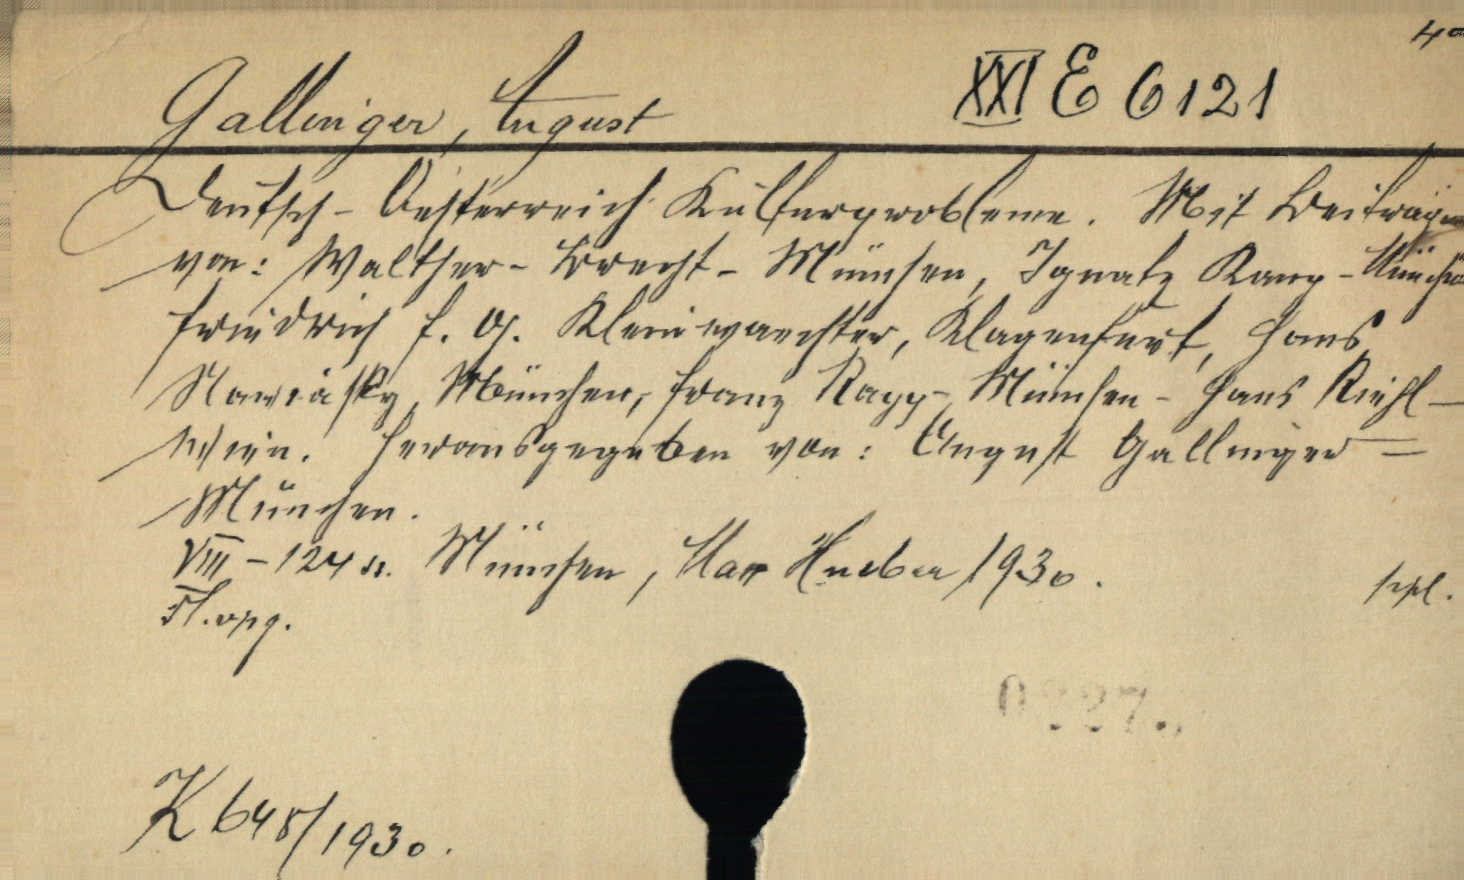 4°
Gallinger, August
XXI E 6121
Deutsch-Oesterreich Kulturprobleme. Mit Beiträgen
von: Walther-Brecht-München, Ignatz Kaup-München
Friedrich F. G. Kleinwaechter, Klagenfurt, Hans
Nawiasky, München, Franz Rapp-München-Hans Riehl-
Wien. Herausgegeben von: August Gallinger-
München.
VIII-124 s. München, Max Hueber 1930.
K 648/1930.